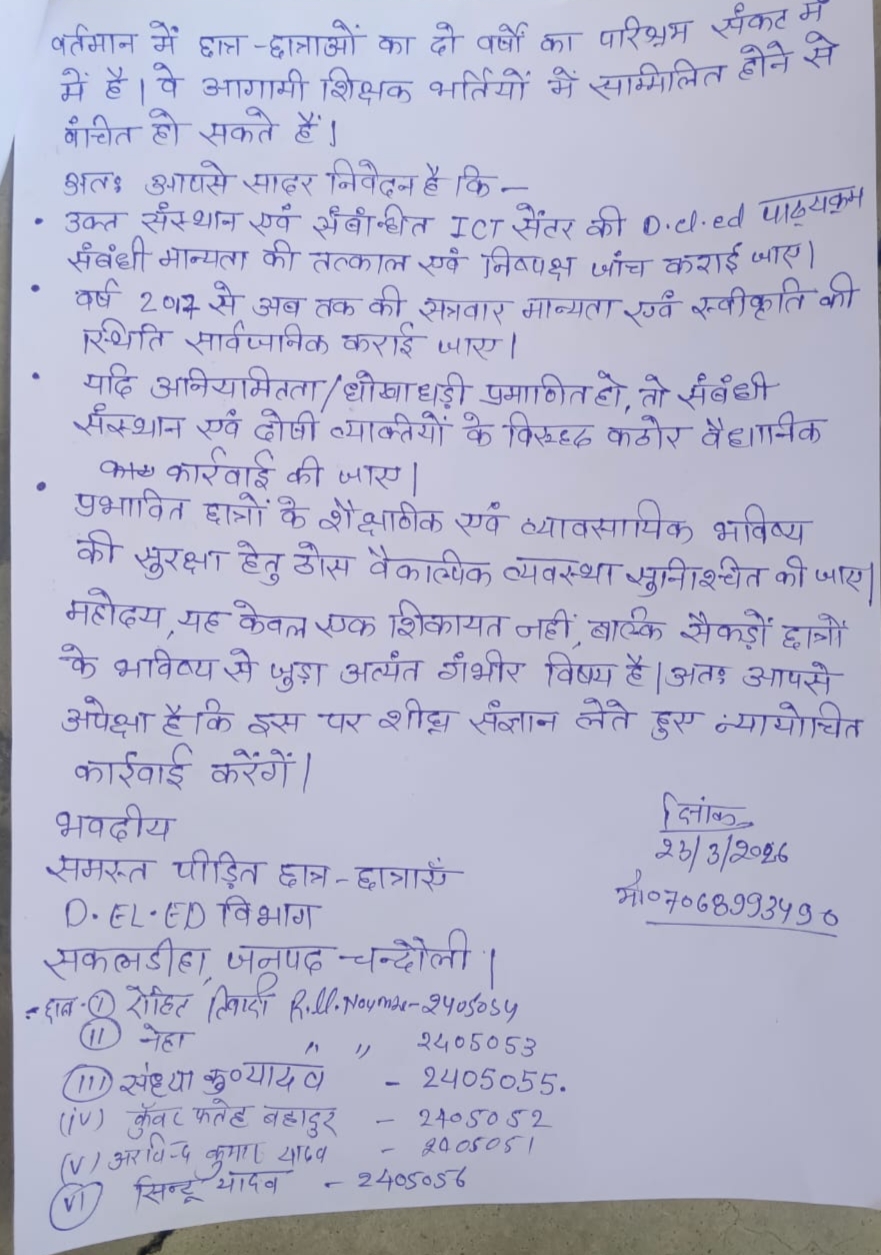 वर्तमान में छात्र-छात्राओं का दो वर्षों का परिश्रम संकट में
में है। वे आगामी शिक्षक भर्तियों में साम्मिलित होने से
वंचित हो सकते हैं।
अतः आपसे सादर निवेदन है कि -
• उक्त संस्थान एवं संबंन्धीत ICT सेंटर की D.el.ed पाठ्यक्रम
संबंधी मान्यता की तत्काल एवं निष्पक्ष जांच कराई जाए।
• वर्ष 2017 से अब तक की सत्रवार मान्यता एवं स्वीकृति की
स्थिति सार्वजनिक कराई जाए।
• यदि अनियामितता/धोखाधड़ी प्रमाणित हो, तो संबंधी
संस्थान एवं दोषी व्याक्तियों के विरूध्द कठोर वैधानिक
कार्रवाई की जाए।
• प्रभावित छात्रों के शैक्षाणिक एवं व्यावसायिक भविष्य
की सुरक्षा हेतु ठोस वैकाल्पिक व्यवस्था सुनिाश्चेत की जाए।
महोदय, यह केवल एक शिकायत नहीं, बाल्कि सैकड़ों छात्रों
के भविष्य से जुड़ा अत्यंत गंभीर विषय है। अतः आपसे
अपेक्षा है कि इस पर शीघ्र संज्ञान लेते हुए न्यायोचित
कार्रवाई करेंगें।
भवदीय
समस्त पीड़ित छात्र-छात्राएँ
D.EL.ED विभाग
सकलडीहा, जनपद-चन्दौली।
दिनांक
23/3/2026
मो०7068993490
छात्र-(I) रोहित तिवारी R.ll.Noumbe-2405054
(II) नेहा " " 2405053
(III) संध्या कु० यादव - 2405055.
(iv) कुँवर फतेह बहादुर - 2405052
(V) अरविन्द कुमार यादव - 2405051
(VI) सिन्टू यादव - 2405056